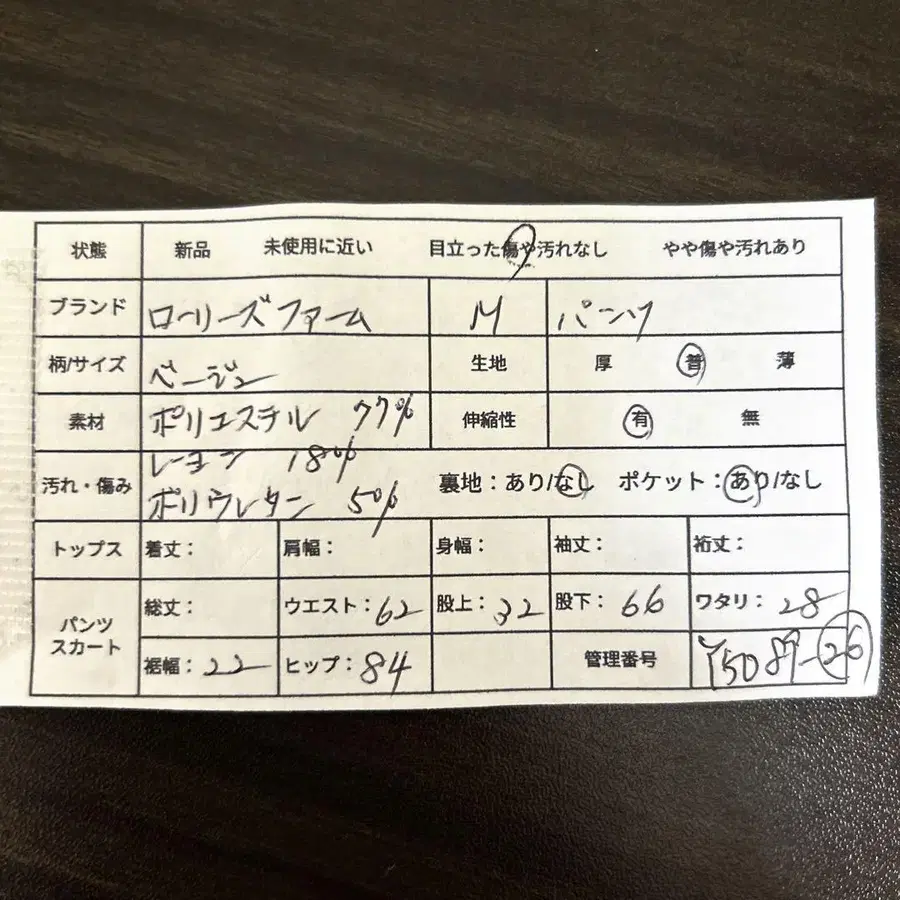 状態 新品 未使用に近い 目立った傷や汚れなし やや傷や汚れあり
ブランド ローリーズファーム M パンツ
柄/サイズ ベージュ 生地 厚 普 薄
素材 ポリエステル 77% 伸縮性 有 無
レーヨン 18%
汚れ・傷み ポリウレタン 5% 裏地：あり/なし ポケット：あり/なし
トップス 着丈： 肩幅： 身幅： 袖丈： 裄丈：
パンツ スカート 総丈： ウエスト：62 股上：32 股下：66 ワタリ：28
裾幅：22 ヒップ：84 管理番号 26